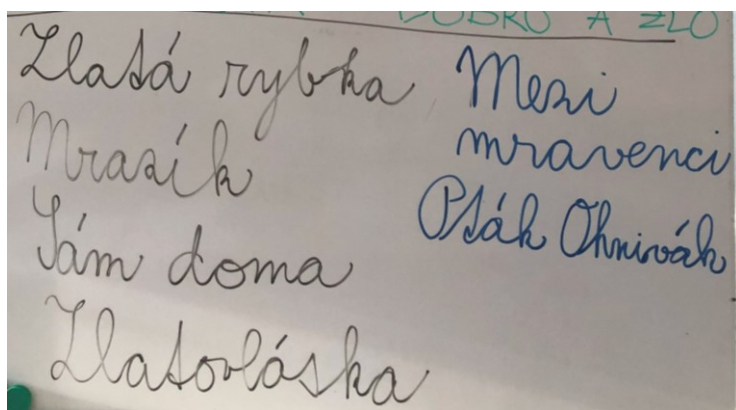 DOBRO A ZLO
Zlatá rybka
Mrazík
Sám doma
Zlatovláska
Mezi
mravenci
Pták Ohnivák